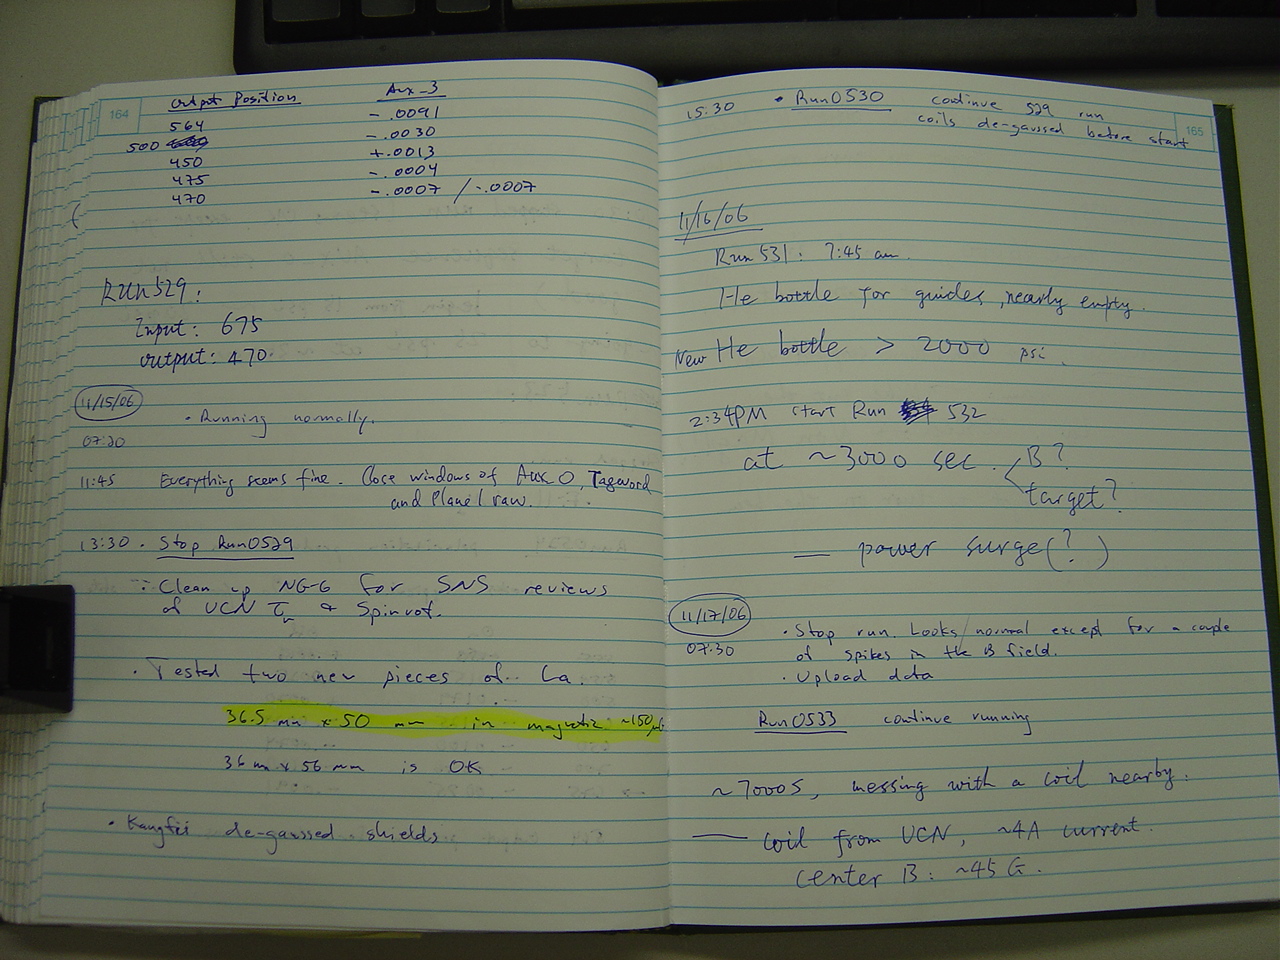 164
Output Position Aux-3
564 -.0091
500 -.0030
450 +.0013
475 -.0004
470 -.0007 / -.0007
Run 529:
Input: 675
output: 470
11/15/06
• Running normally.
07:20
11:45 Everything seems fine. Close windows of Aux 0, Tageword
and Plane 1 raw.
13:30 • Stop Run0529
∵ Clean up NG-6 for SNS reviews
of UCN τn & Spinrot.
• Tested two new pieces of La.
36.5 mm x 50 mm in magnetic ~150 μG
36 mm x 56 mm is OK
• Kangfei de-gaussed shields
165
15:30 • Run0530 continue 529 run
coils de-gaussed before start
11/16/06
Run 531: 7:45 am.
He bottle for guides, nearly empty.
New He bottle > 2000 psi.
2:34PM start Run 532
at ~3000 sec. B?
target?
— power surge(?)
11/17/06
07:30 • Stop run. Looks normal except for a couple
of spikes in the B field.
• Upload data
Run0533 continue running
~7000S, messing with a coil nearby.
— coil from UCN, ~4A current.
center B: ~45 G.